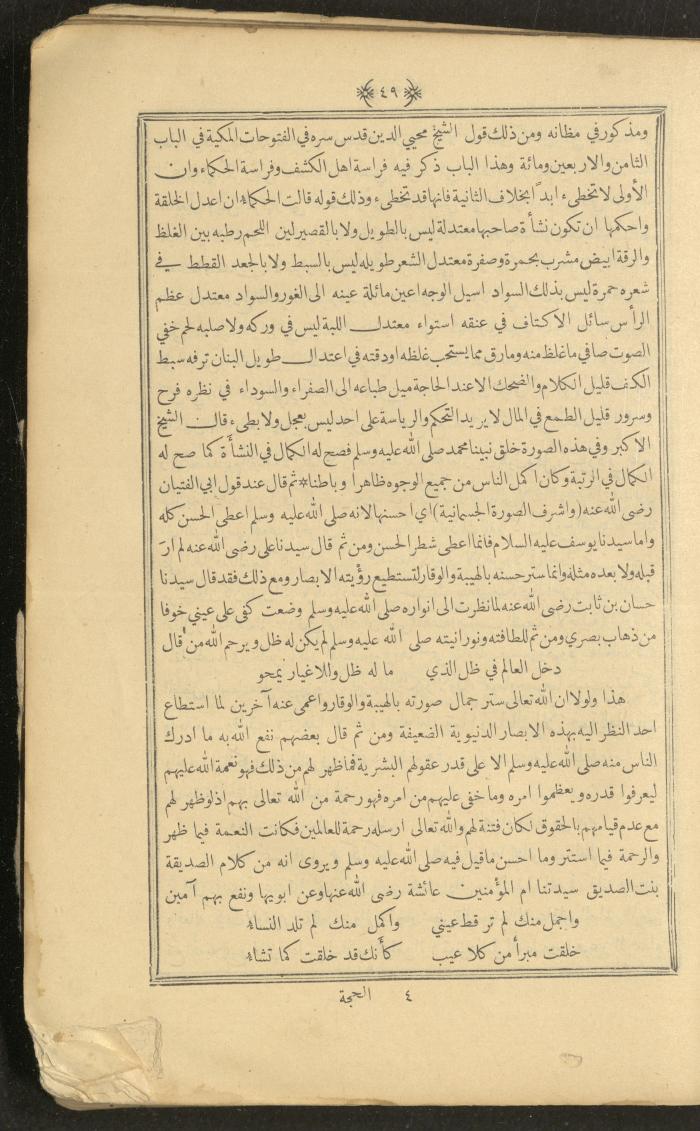 ٤٩
ومذكور في مظانه ومن ذلك قول الشيخ محيي الدين قدس سره في الفتوحات المكية في الباب
الثامن والاربعين ومائة وهذا الباب ذكر فيه فراسة اهل الكشف وفراسة الحكماء وان
الأولى لا تخطىء ابداً بخلاف الثانية فانها قد تخطىء وذلك قوله قالت الحكماء ان اعدل الخلقة
واحكمها ان تكون نشأة صاحبها معتدلة ليس بالطويل ولا بالقصير لين اللحم رطبه بين الغلظ
والرقة ابيض مشرب بحمرة وصفرة معتدل الشعر طويله ليس بالسبط ولا بالجعد القطط في
شعره حمرة ليس بذلك السواد اسيل الوجه اعين مائلة عينه الى الغور والسواد معتدل عظم
الرأس سائل الاكتاف في عنقه استواء معتدل اللبة ليس في وركه ولا صلبه لحم خفي
الصوت صافي ما غلظ منه وما رق مما يستحب غلظه او دقته في اعتدال طويل البنان ترفه سبط
الكف قليل الكلام والضحك الا عند الحاجة ميل طباعه الى الصفراء والسوداء في نظره فرح
وسرور قليل الطمع في المال لا يريد التحكم والرياسة على احد ليس بعجل ولا بطىء قال الشيخ
الاكبر وفي هذه الصورة خلق نبينا محمد صلى الله عليه وسلم فصح له الكمال في النشأة كما صح له
الكمال في الرتبة وكان اكمل الناس من جميع الوجوه ظاهرا وباطنا * ثم قال عند قول ابي الفتيان
رضى الله عنه (واشرف الصورة الجسمانية) اي احسنها لانه صلى الله عليه وسلم اعطى الحسن كله
واما سيدنا يوسف عليه السلام فانما اعطى شطر الحسن ومن ثم قال سيدنا على رضى الله عنه لم ارَ
قبله ولا بعده مثله وانما ستر حسنه بالهيبة والوقار لتستطيع رؤيته الابصار ومع ذلك فقد قال سيدنا
حسان بن ثابت رضى الله عنه لما نظرت الى انواره صلى الله عليه وسلم وضعت كفى على عيني خوفا
من ذهاب بصري ومن ثم للطافته ونورانيته صلى الله عليه وسلم لم يكن له ظل ويرحم الله من قال
دخل العالم في ظل الذي ما له ظل والاغيار يمحو
هذا ولولا ان الله تعالى ستر جمال صورته بالهيبة والوقار واعمى عنه آخرين لما استطاع
احد النظر اليه بهذه الابصار الدنيوية الضعيفة ومن ثم قال بعضهم نفع الله به ما ادرك
الناس منه صلى الله عليه وسلم الا على قدر عقولهم البشرية فما ظهر لهم من ذلك فهو نعمة الله عليهم
ليعرفوا قدره ويعظموا امره وما خفى عليهم من امره فهو رحمة من الله تعالى بهم اذ لو ظهر لهم
مع عدم قيامهم بالحقوق لكان فتنة لهم والله تعالى ارسله رحمة للعالمين فكانت النعمة فيما ظهر
والرحمة فيما استتر وما احسن ما قيل فيه صلى الله عليه وسلم ويروى انه من كلام الصديقة
بنت الصديق سيدتنا ام المؤمنين عائشة رضى الله عنها وعن ابويها ونفع بهم آمين
واجمل منك لم تر قط عيني واكمل منك لم تلد النساء
خلقت مبرأ من كلا عيب كأنك قد خلقت كما تشاء
٤ الحجة